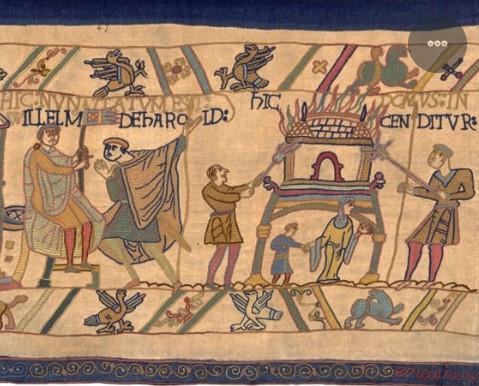 HIC: NVNTIATVM EST:
WILLELM DE HAROLD:
HIC DOMVS: IN
CEN DITVR: